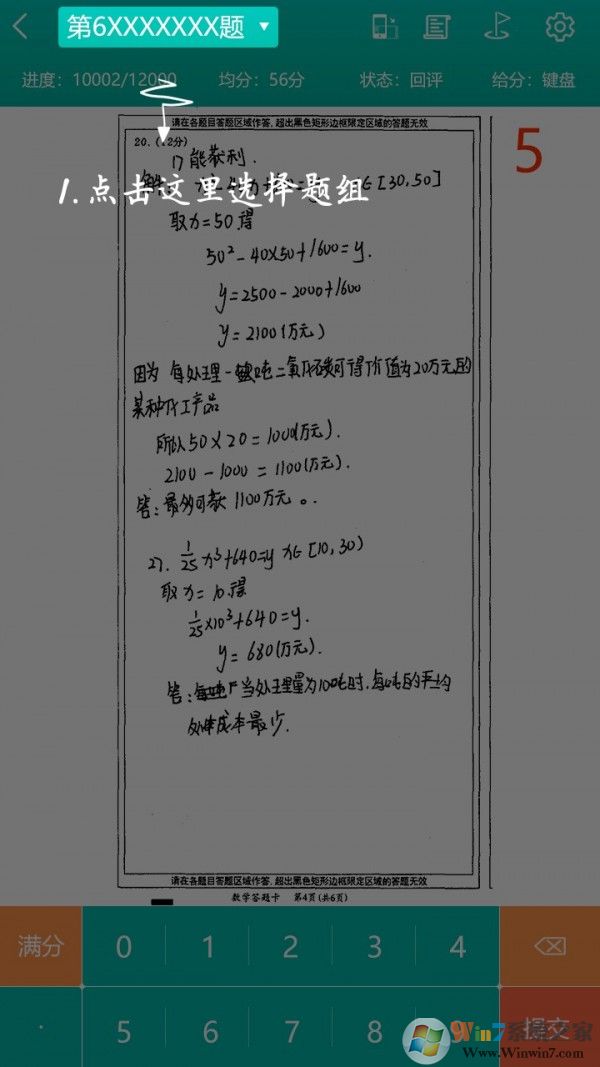 第6XXXXXXX题
进度：10002/12000 均分：56分 状态：回评 给分：键盘
请在各题目答题区域作答，超出黑色矩形边框限定区域的答题无效
20.（12分）
5
1）能获利.
1.点击这里选择题组
∈[30,50]
取x=50得
50²-40×50+1600=y.
y=2500-2000+1600
y=2100(万元)
因为 每处理一吨二氧化碳可得价值为20万元的
某种化工产品
所以50×20=1000(万元).
2100-1000=1100(万元).
答:最多可获1100万元。
27. 1/25 x³+640=y x∈[10,30)
取x=10.得
1/25×10³+640=y.
y=680(万元).
答: 当处理量为10吨时.每吨的平均
处理成本最少.
请在各题目答题区域作答，超出黑色矩形边框限定区域的答题无效
数学答题卡 第4页(共6页)
满分 0 1 2 3 4
. 5 6 7 8 9 提交
Win7系统之家
Www.Winwin7.com